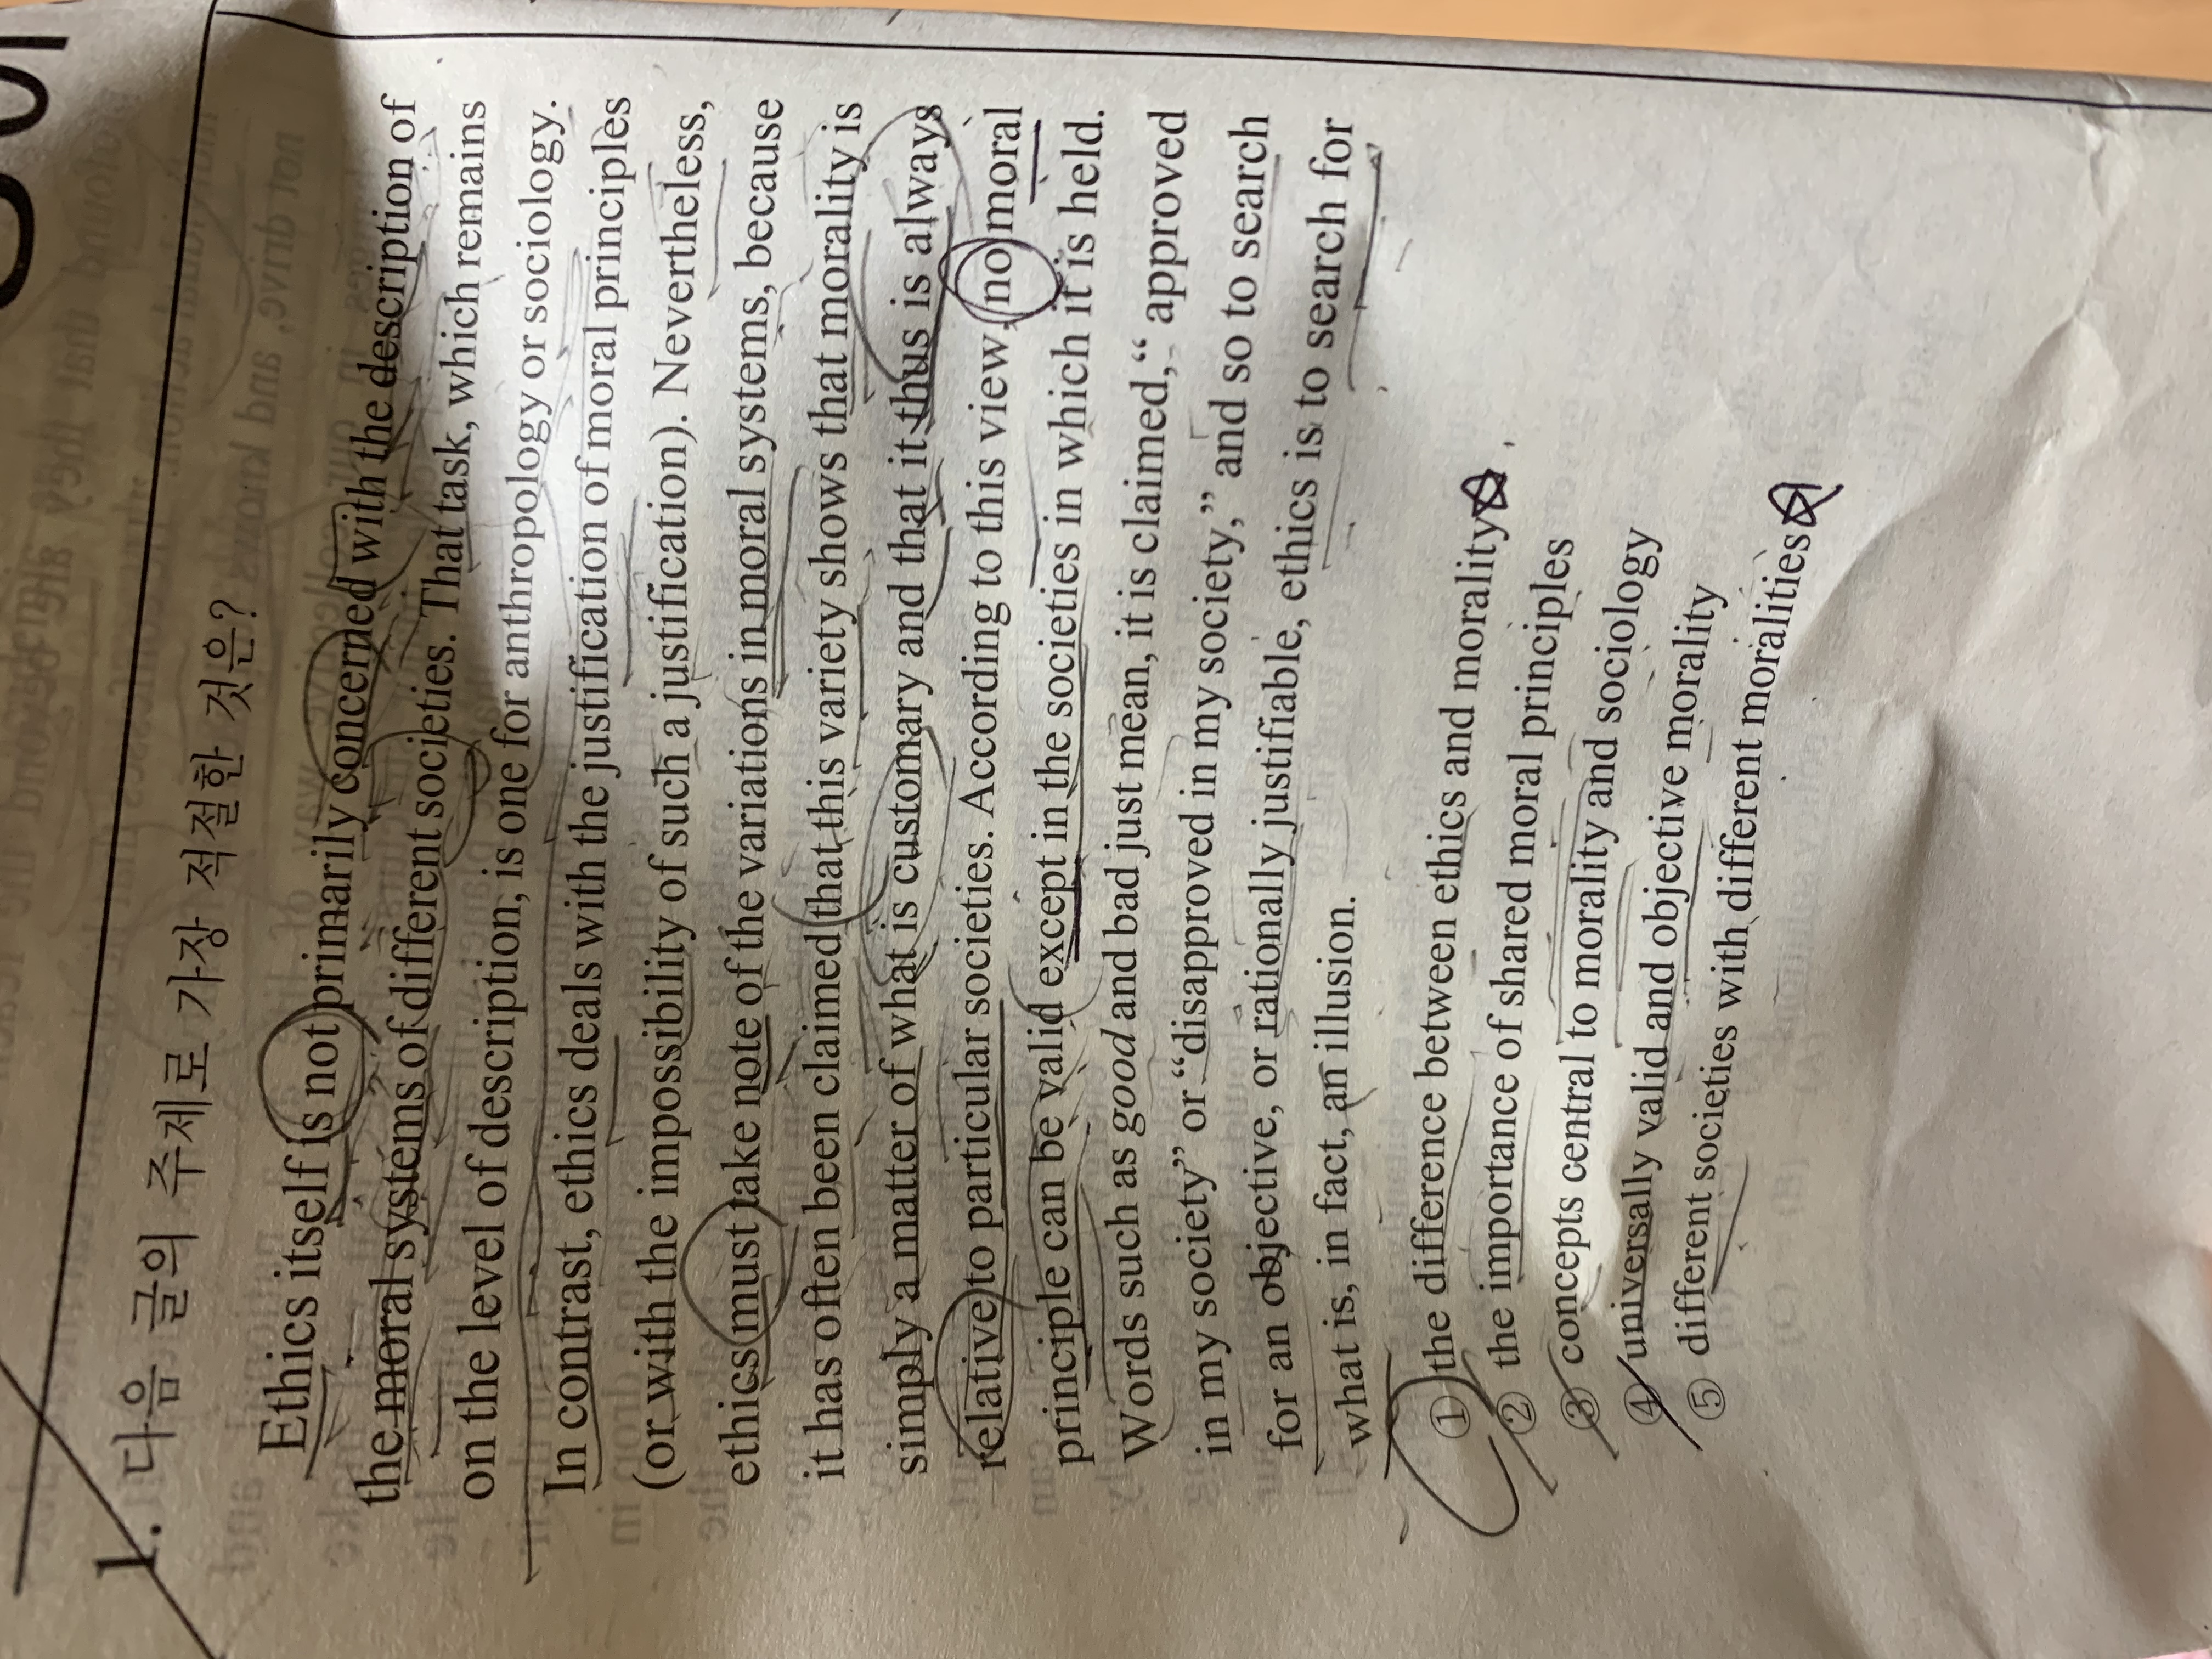 1. 다음 글의 주제로 가장 적절한 것은?
Ethics itself is not primarily concerned with the description of
the moral systems of different societies. That task, which remains
on the level of description, is one for anthropology or sociology.
In contrast, ethics deals with the justification of moral principles
(or with the impossibility of such a justification). Nevertheless,
ethics must take note of the variations in moral systems, because
it has often been claimed that this variety shows that morality is
simply a matter of what is customary and that it thus is always
relative to particular societies. According to this view, no moral
principle can be valid except in the societies in which it is held.
Words such as good and bad just mean, it is claimed, “ approved
in my society” or “disapproved in my society,” and so to search
for an objective, or rationally justifiable, ethics is to search for
what is, in fact, an illusion.
① the difference between ethics and morality
② the importance of shared moral principles
③ concepts central to morality and sociology
④ universally valid and objective morality
⑤ different societies with different moralities